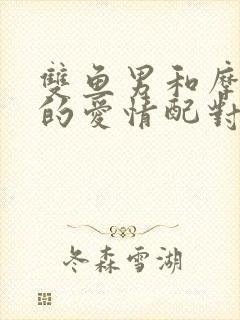 雙魚男和摩
的愛情配對
冬森雪湖